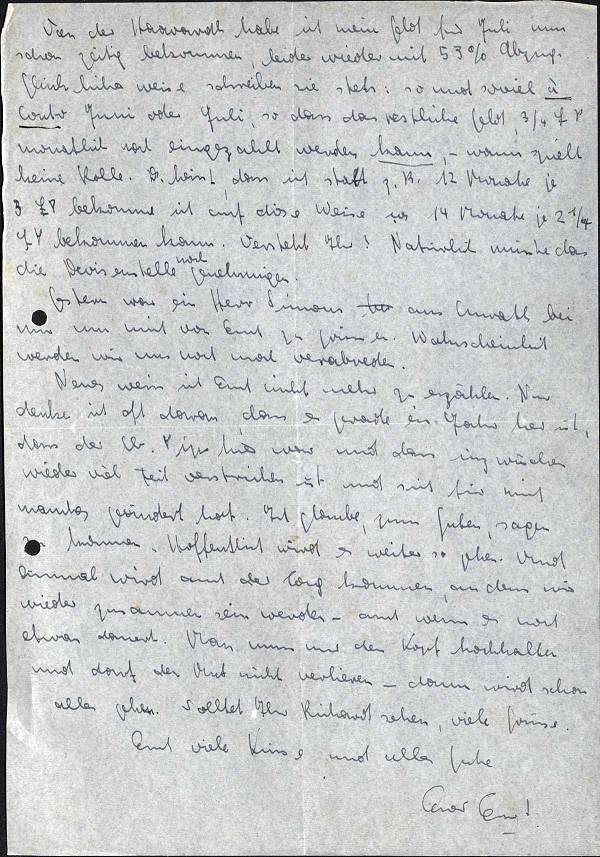 Von der Haavarah habe ich mein Geld für Juli nun
schon zeitig bekommen, leider wieder mit 53% Abzug.
Glücklicherweise schreiben sie stets: so und soviel à
Conto Juni oder Juli, so dass das restliche Geld, 3/4 £P
monatlich noch eingezahlt werden kann, – wann spielt
keine Rolle. D. heisst, dass ich statt z. B. 12 Monate je
3 £P bekomme ich auf diese Weise 14 Monate je 2 1/4
£P bekommen kann. Versteht Ihr? Natürlich müsste das
die Devisenstelle noch genehmigen.
Gestern war ein Herr Simons aus bei
mir um mich von Euch zu grüssen. Wahrscheinlich
werden wir uns noch mal verabreden.
Neues weiss ich Euch nicht mehr zu erzählen. Nur
denke ich oft daran, dass es gerade ein Jahr her ist,
dass der lb. hier war und dass inzwischen
wieder viel Zeit verstrichen ist und sich für mich
manches geändert hat. Ich glaube, zum Guten, sagen
zu können. Hoffentlich wird es weiter so gehen. Und
einmal wird auch der Tag kommen, an dem wir
wieder zusammen sein werden – auch wenn es noch
etwas dauert. Man muss nur den Kopf hochhalten
und darf den Mut nicht verlieren – dann wird schon
alles gehen. Solltet Ihr Richard sehen, viele Grüsse.
Euch viele Küsse und alles Gute
Euer